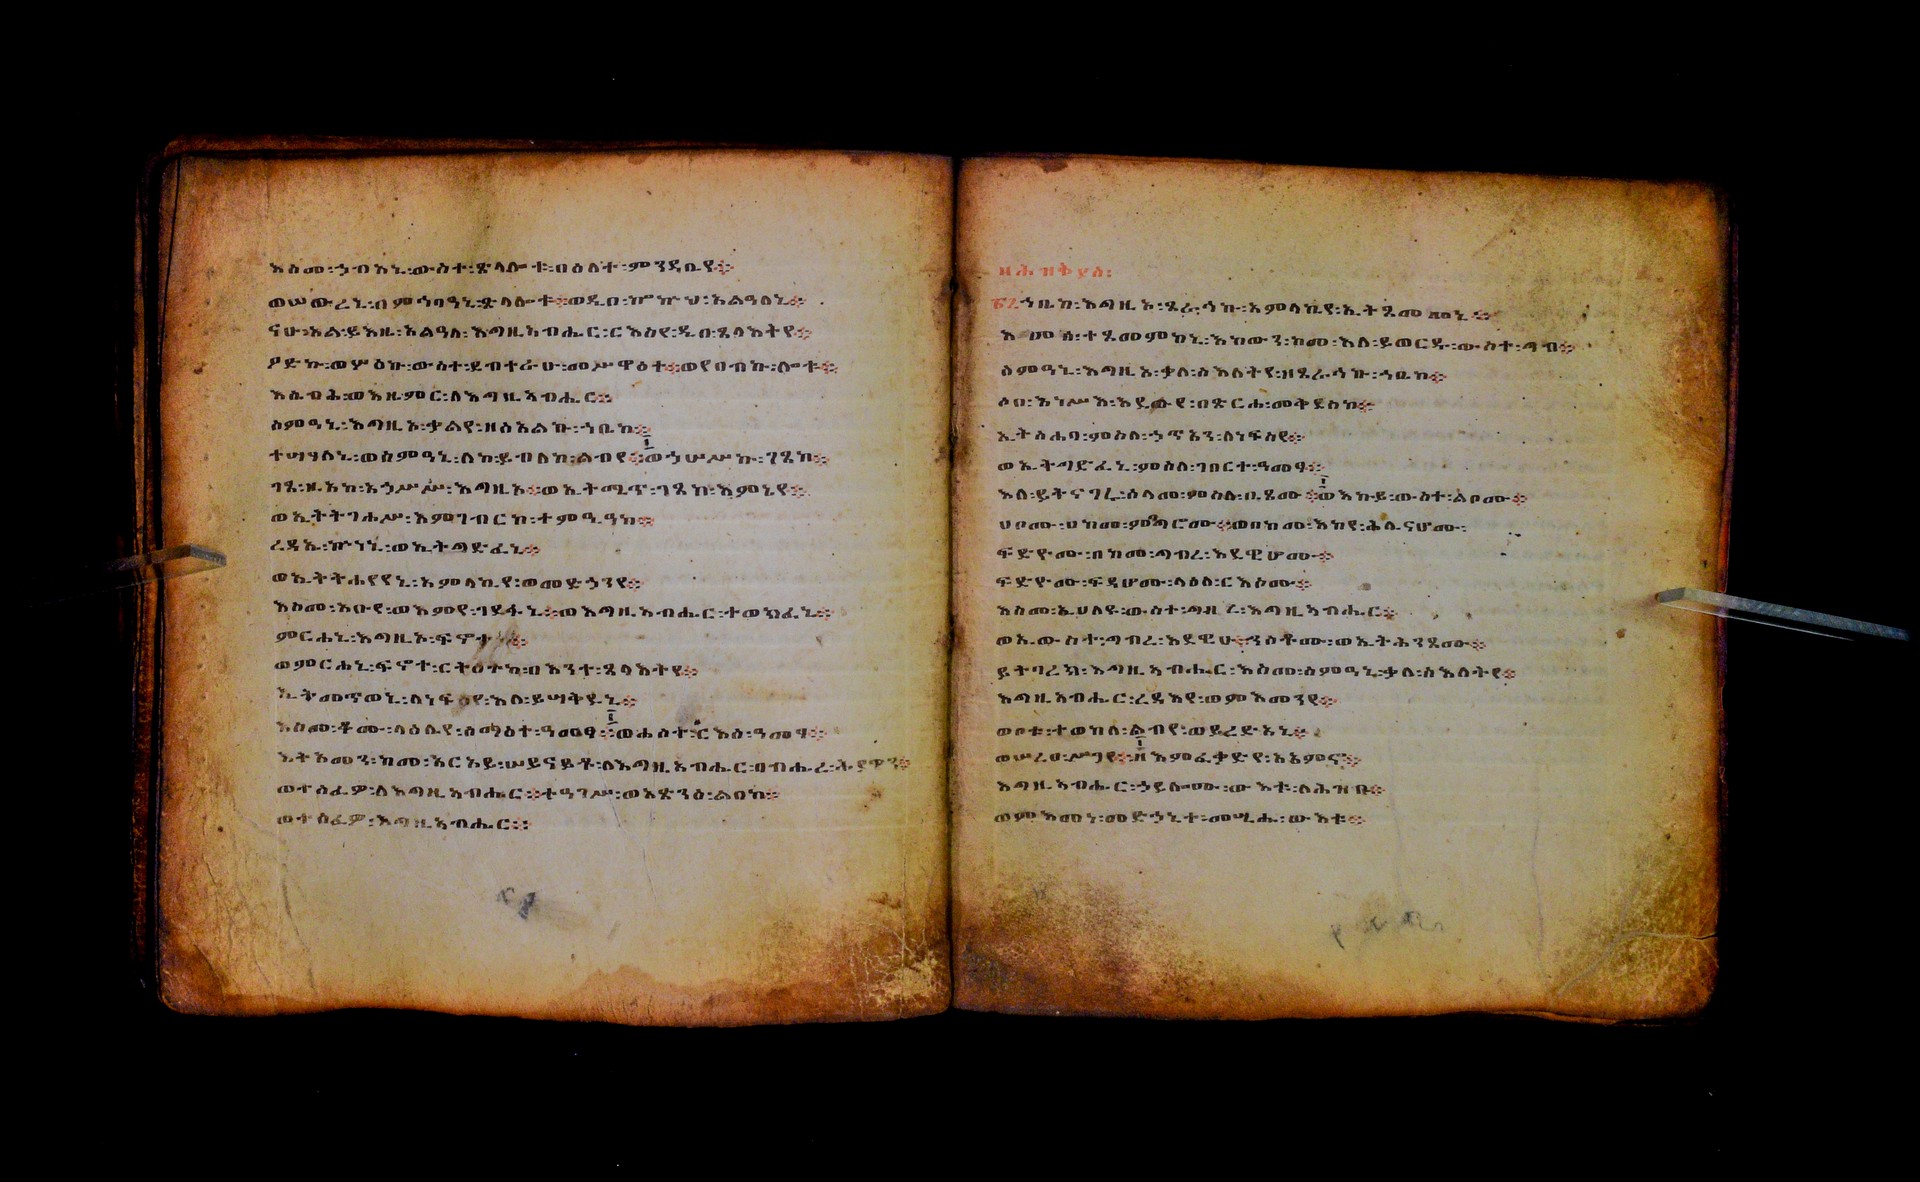 እስመ፡ኀብአኒ፡ውስተ፡ጽላሎቱ፡በዕለተ፡ምንዳቤየ።
ወሠወረኒ፡በምኅባዓኒ፡ጽላሎቱ።ወዲበ፡ኰኵሕ፡አልዓለኒ።
ናሁ፡አልይእዜ፡አልዓለ፡እግዚአብሔር፡ርእስየ፡ዲበ፡ጸላእትየ።
ዖድኩ፡ወሦዕኩ፡ውስተ፡ደብተራሁ፡መሥዋዕተ።ወየበብኩ፡ሎቱ።
እሴብሕ፡ወእዜምር፡ለእግዚአብሔር።
ስምዓኒ፡እግዚኦ፡ቃልየ፡ዘሰአልኩ፡ኀቤከ።
ተሣሃለኒ፡ወስምዓኒ፡ለከ፡ይብለከ፡ልብየ።ወኀሠሥኩ፡ገጸከ።
ገጸ፡ዚአከ፡አኀሥሥ፡እግዚኦ።ወኢትሚጥ፡ገጸከ፡እምኔየ።
ወኢትትገሐሥ፡እምገብርከ፡ተምዒዓከ።
ረዳኤ፡ኩነኒ፡ወኢትግድፈኒ።
ወኢትትሐየየኒ፡አምላኪየ፡ወመድኀንየ።
እስመ፡አቡየ፡ወእምየ፡ገደፉኒ።ወእግዚአብሔር፡ተወክፈኒ።
ምርሐኒ፡እግዚኦ፡ፍኖተ
ወምርሐኒ፡ፍኖተ፡ርትዕተከ፡በእንተ፡ጸላእትየ።
ኢትመጥወኒ፡ለነፍሰየ፡እለ፡ይሣቅዩኒ።
እስመ፡ቆሙ፡ላዕሌየ፡ሰማዕተ፡ዓመፃ።ወሐሰት፡ርእሰ፡ዓመፃ።
እትአመን፡ከመ፡እርአይ፡ሠናይቶ፡ለእግዚአብሔር፡በብሔረ፡ሕያዋን።
ወተሰፈዎ፡ለእግዚአብሔር።ተዓገሥ፡ወአጽንዕ፡ልበከ።
ወተሰፈዎ፡እግዚአብሔር።
፳፯ኀቤከ፡እግዚኦ፡ጸራኅኩ፡አምላኪየ፡ኢትጸመመኒ።
እመሰ፡ተጸመምከኒ፡እከውን፡ከመ፡እለ፡ይወርዱ፡ውስተ፡ግብ።
ስምዓኒ፡እግዚኦ፡ቃለ፡ስእለትየ፡ዘጸራኅኩ፡ኀቤከ።
ሶበ፡አነሥእ፡እደውየ፡በጽርሐ፡መቅደስከ።
ኢትስሐባ፡ምስለ፡ኃጥኣን፡ለነፍስየ።
ወኢትግድፈኒ፡ምስለ፡ገበርተ፡ዓመፃ።
እለ፡ይትናገሩ፡ሰላመ፡ምስለ፡ቢጾሙ።ወእኩይ፡ውስተ፡ልቦሙ።
ሀቦሙ፡በከመ፡ምግባሮሙ።ወበከመ፡እከየ፡ሕሊናሆሙ፡
ፍድዮሙ፡በከመ፡ግብረ፡እደዊሆሙ።
ፍድዮሙ፡ፍዳሆሙ፡ላዕለ፡ርእሶሙ።
እስመ፡ኢሀለዩ፡ውስተ፡ግብረ፡እግዚአብሔር።
ወኢውስተ፡ግብረ፡እደዊሁ።ንስቶሙ፡ወኢትሕንጾሙ።
ይትባረክ፡እግዚአብሔር፡እስመ፡ሰምዓኒ፡ቃለ፡ስእለትየ።
እግዚአብሔር፡ረዳእየ፡ወምእመንየ።
ቦቱ፡ተወከለ፡ልብየ፡ወይረድአኒ።
ወሠረፀ፡ሥጋየ።ዘእምፈቃድየ፡አአምኖ።
እግዚአብሔር፡ኃይሎሙ፡ውእቱ፡ለሕዝቡ።
ወምእመነ፡መድኀኒተ፡መሲሑ፡ውእቱ።